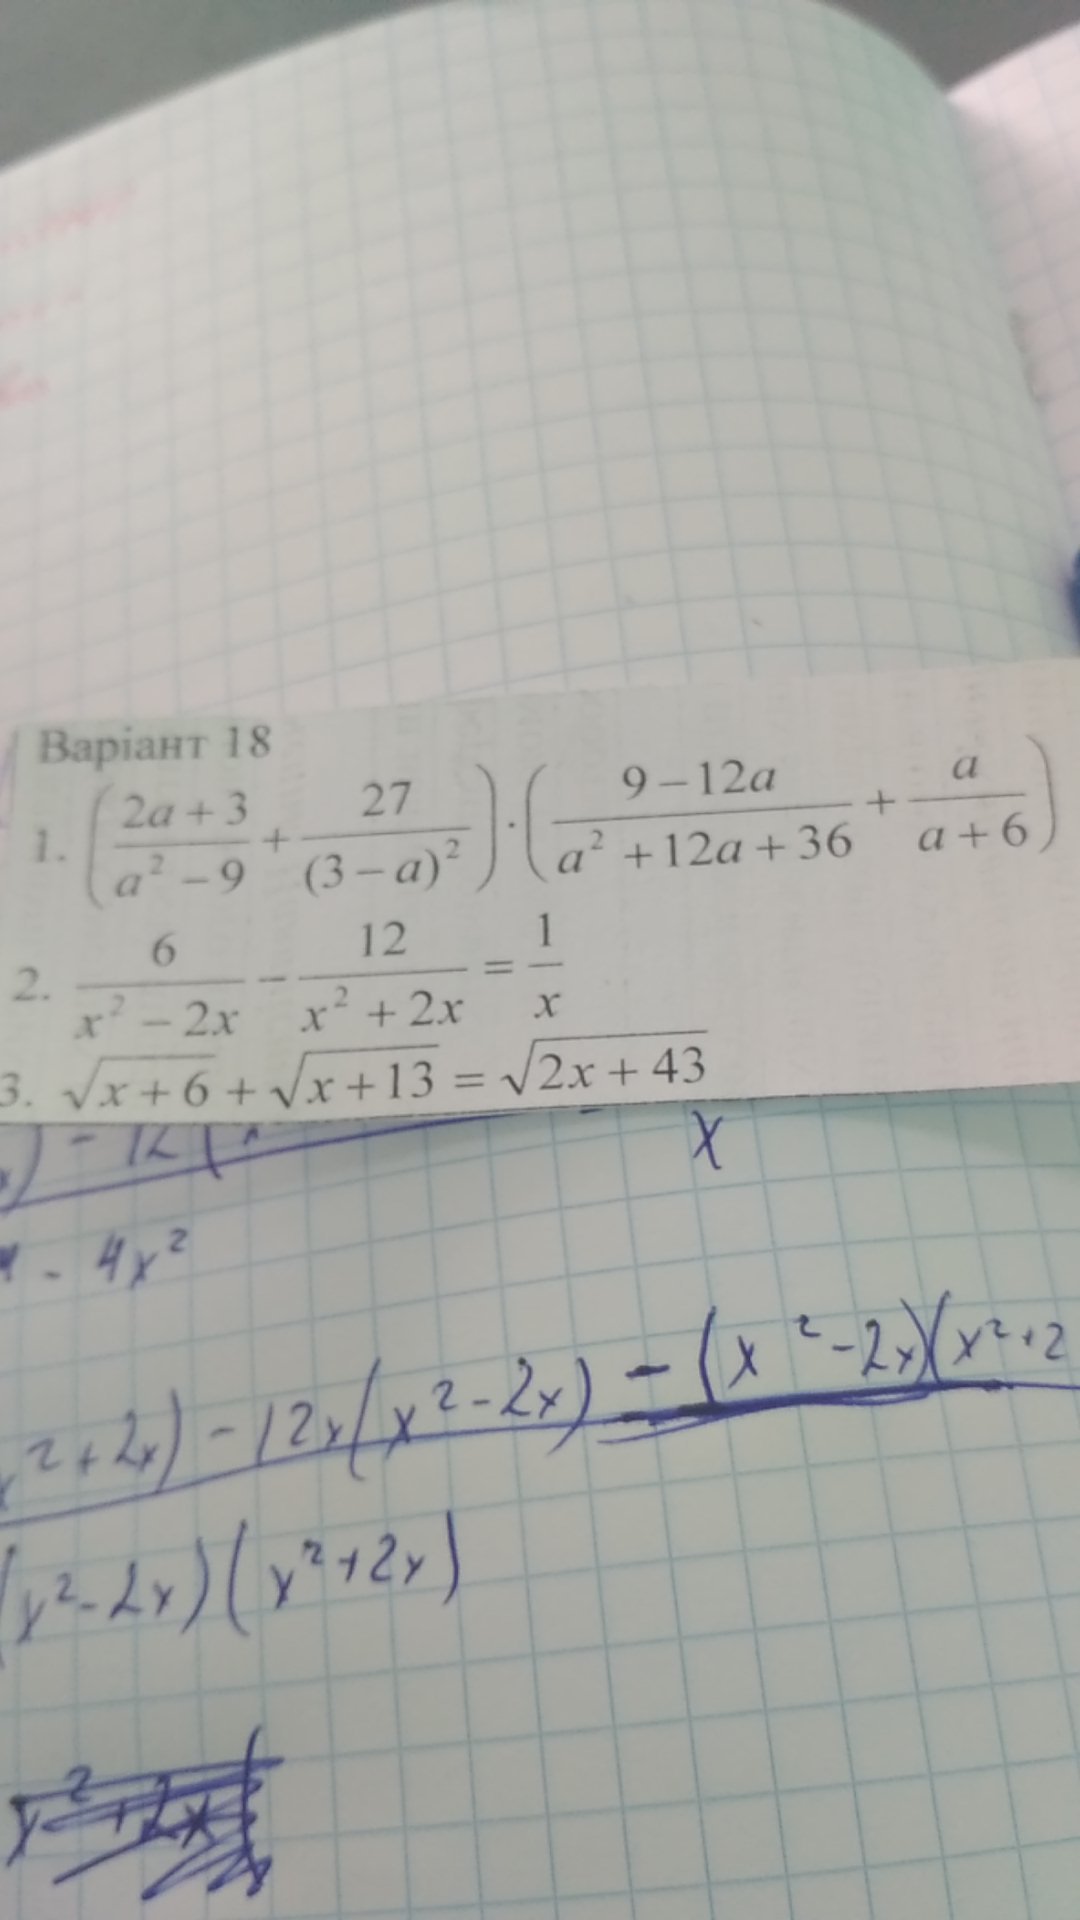 Варіант 18
1. ( (2a + 3)/(a² − 9) + 27/(3 − a)² ) · ( (9 − 12a)/(a² + 12a + 36) + a/(a + 6) )
2. 6/(x² − 2x) − 12/(x² + 2x) = 1/x
3. √(x + 6) + √(x + 13) = √(2x + 43)
) - 12 (
x
- 4x²
² + 2x) - 12x(x² - 2x) - (x² - 2x)(x² + 2
(x² - 2x)(x² + 2x)